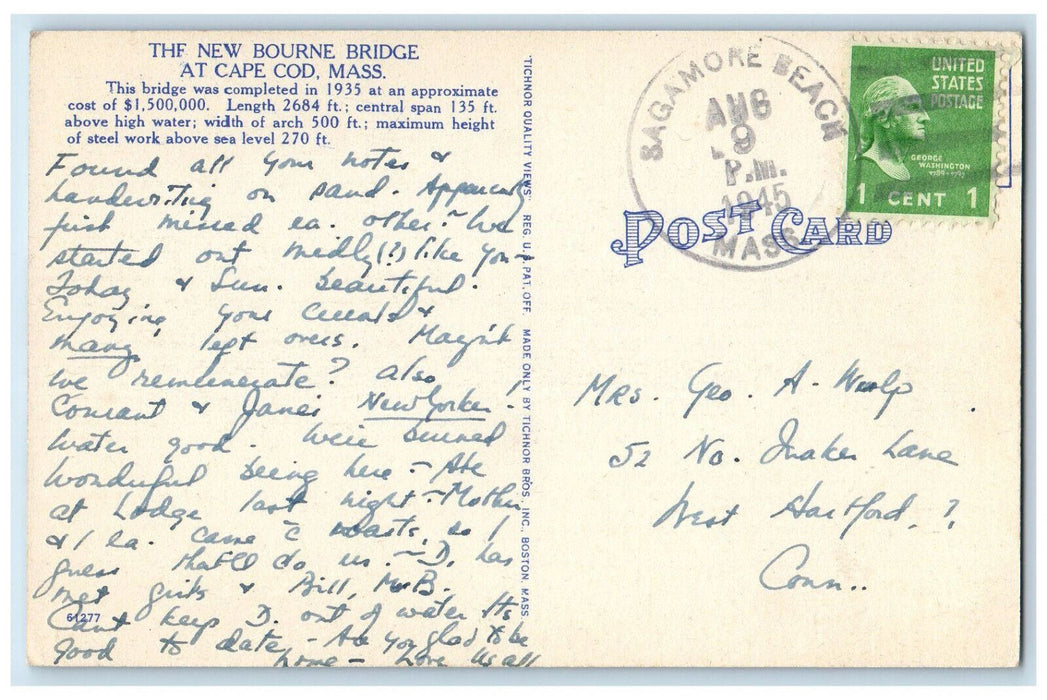 THE NEW BOURNE BRIDGE
AT CAPE COD, MASS.
This bridge was completed in 1935 at an approximate
cost of $1,500,000. Length 2684 ft.; central span 135 ft.
above high water; width of arch 500 ft.; maximum height
of steel work above sea level 270 ft.
Found all your notes &
handwriting on sand. Apparently
just missed ea. other - We
started out (?) like you -
Today & Sun. beautiful.
Enjoying your &
many left overs. Mayn't
we remunerate? Also
Conant & Janes New Yorker!
Water good. We're burned
Wonderful being here - Ate
at Lodge last night - Mother
& I ea. came c̄ roasts, so I
guess that'll do us. - D. has
met girls & Bill, Mr. B.
Can't keep D. out of water Its
good to date - Are you glad to be
home - Love Us all
61277
"TICHNOR QUALITY VIEWS" REG. U.S. PAT. OFF. MADE ONLY BY TICHNOR BROS., INC., BOSTON, MASS.
SAGAMORE BEACH
AUG
9
P.M.
1945
MASS
UNITED
STATES
POSTAGE
GEORGE
WASHINGTON
1789-1797
1 CENT 1
POST CARD
Mrs. Geo. A.
52 No. Quaker Lane
West Hartford, 7
Conn..